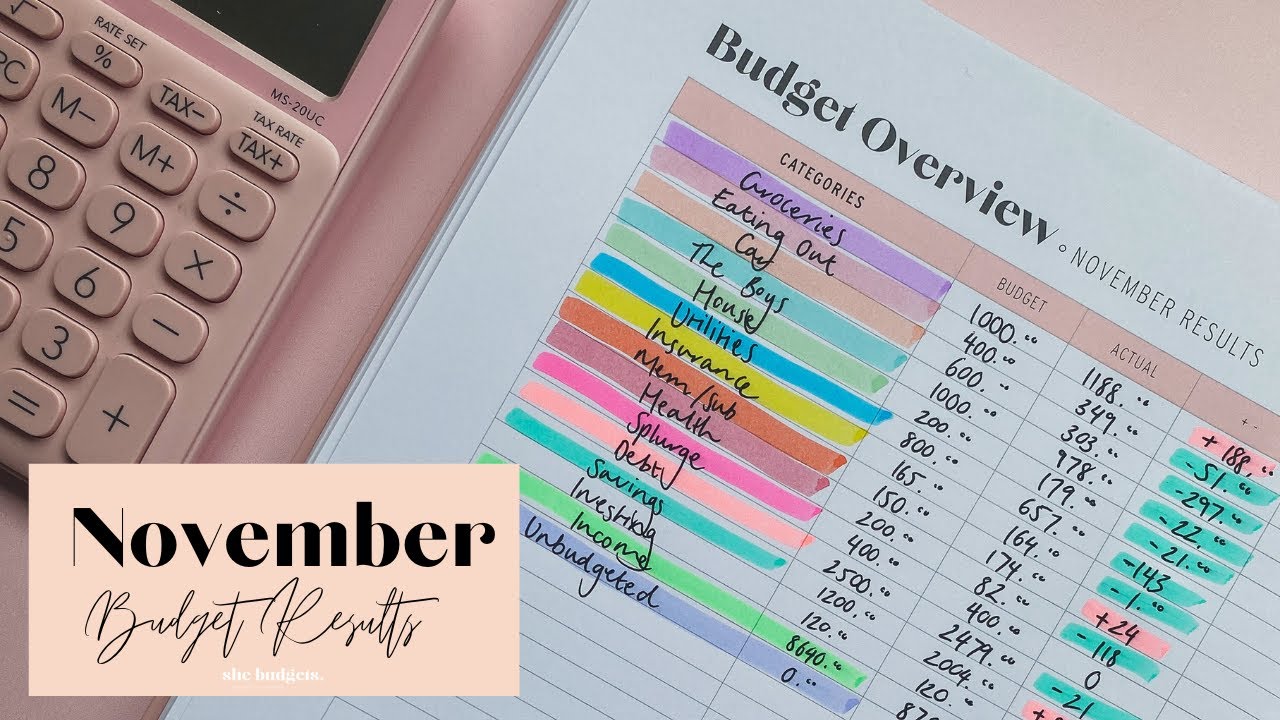 √
RATE SET
%
PC
M−
TAX−
MS-20UC
TAX RATE
M+
TAX+
8
9
÷
5
6
×
3
−
=
+
Budget Overview ∘ NOVEMBER RESULTS
CATEGORIES BUDGET ACTUAL + -
Groceries 1000.00 1188.00 +188.00
Eating Out 400.00 349.00 -51.00
Car 600.00 303.00 -297.00
The Boys 1000.00 978.00 -22.00
House 200.00 179.00 -21.00
Utilities 800.00 657.00 -143
Insurance 165.00 164.00 -1.00
Mem/Sub 150.00 174.00 +24
Health 200.00 82.00 -118
Splurge 400.00 400.00 0
Debt 2500.00 2479.00 -21
Savings 1200.00 2004.00
Investing 120.00 120.00
Income 8640.00
Unbudgeted 0.00
November
Budget Results
she budgets.